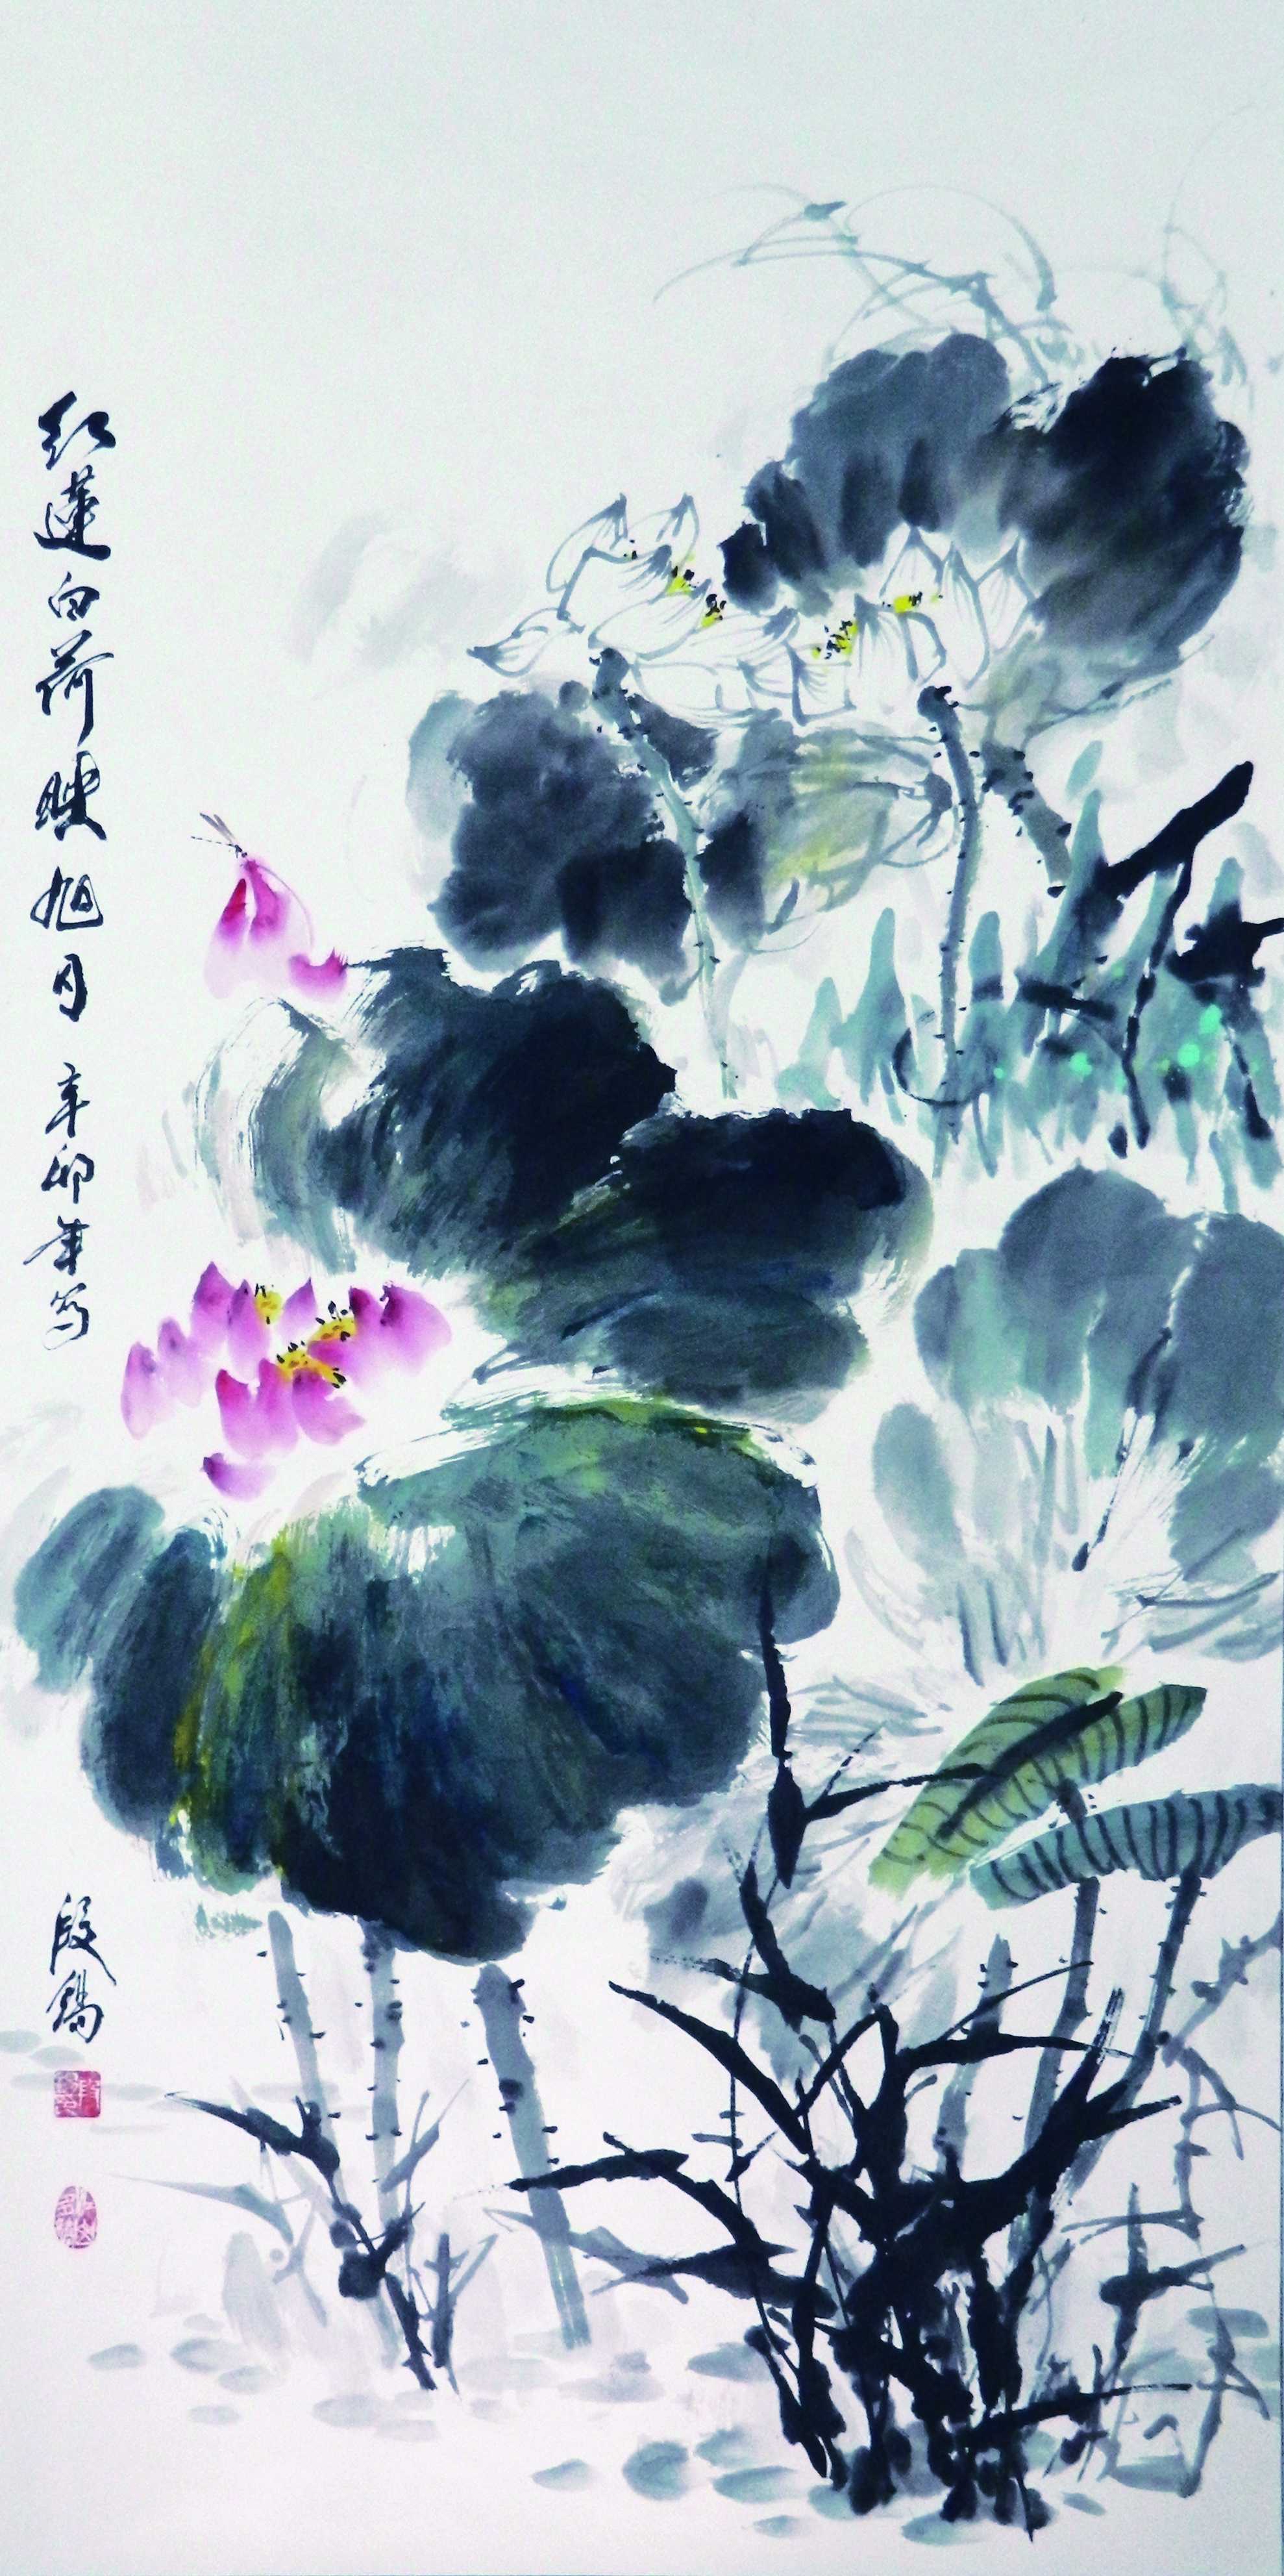 红莲白荷映旭日 辛卯年写
段锡